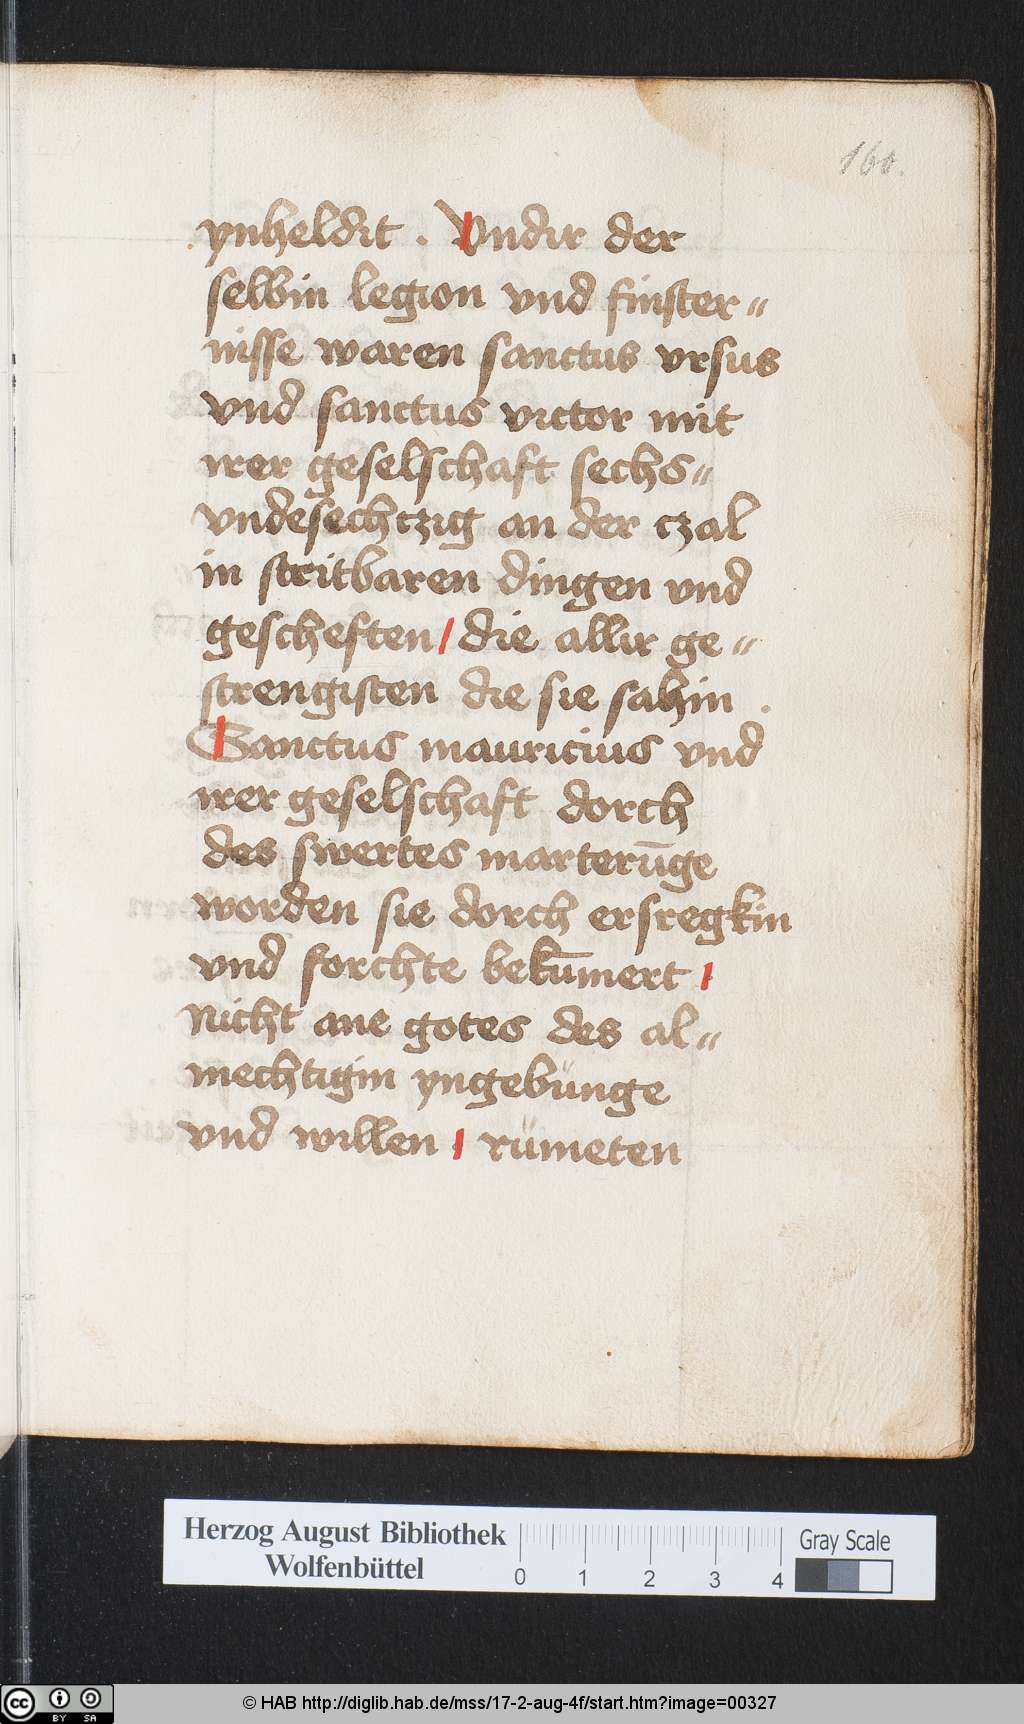 160.
ynheldit . Vndir der
selbin legion vnd finster〃
nisse waren sanctus vrsus
vnd sanctus victor mit
irer geselschaft sechs〃
vndesechczig an der czal
in stritbaren dingen vnd
gescheften / die allir ge〃
strengisten die sie sahin .
Sanctus mauricius vnd
irer geselschaft dorch
des swertes marterūge
worden sie dorch ersregkin
vnd forchte bekūmert /
nicht ane gotes des al〃
mechtigin yngebünge
vnd willen / rümeten
Herzog August Bibliothek
Wolfenbüttel
0 1 2 3 4
Gray Scale
cc BY SA
© HAB http://diglib.hab.de/mss/17-2-aug-4f/start.htm?image=00327